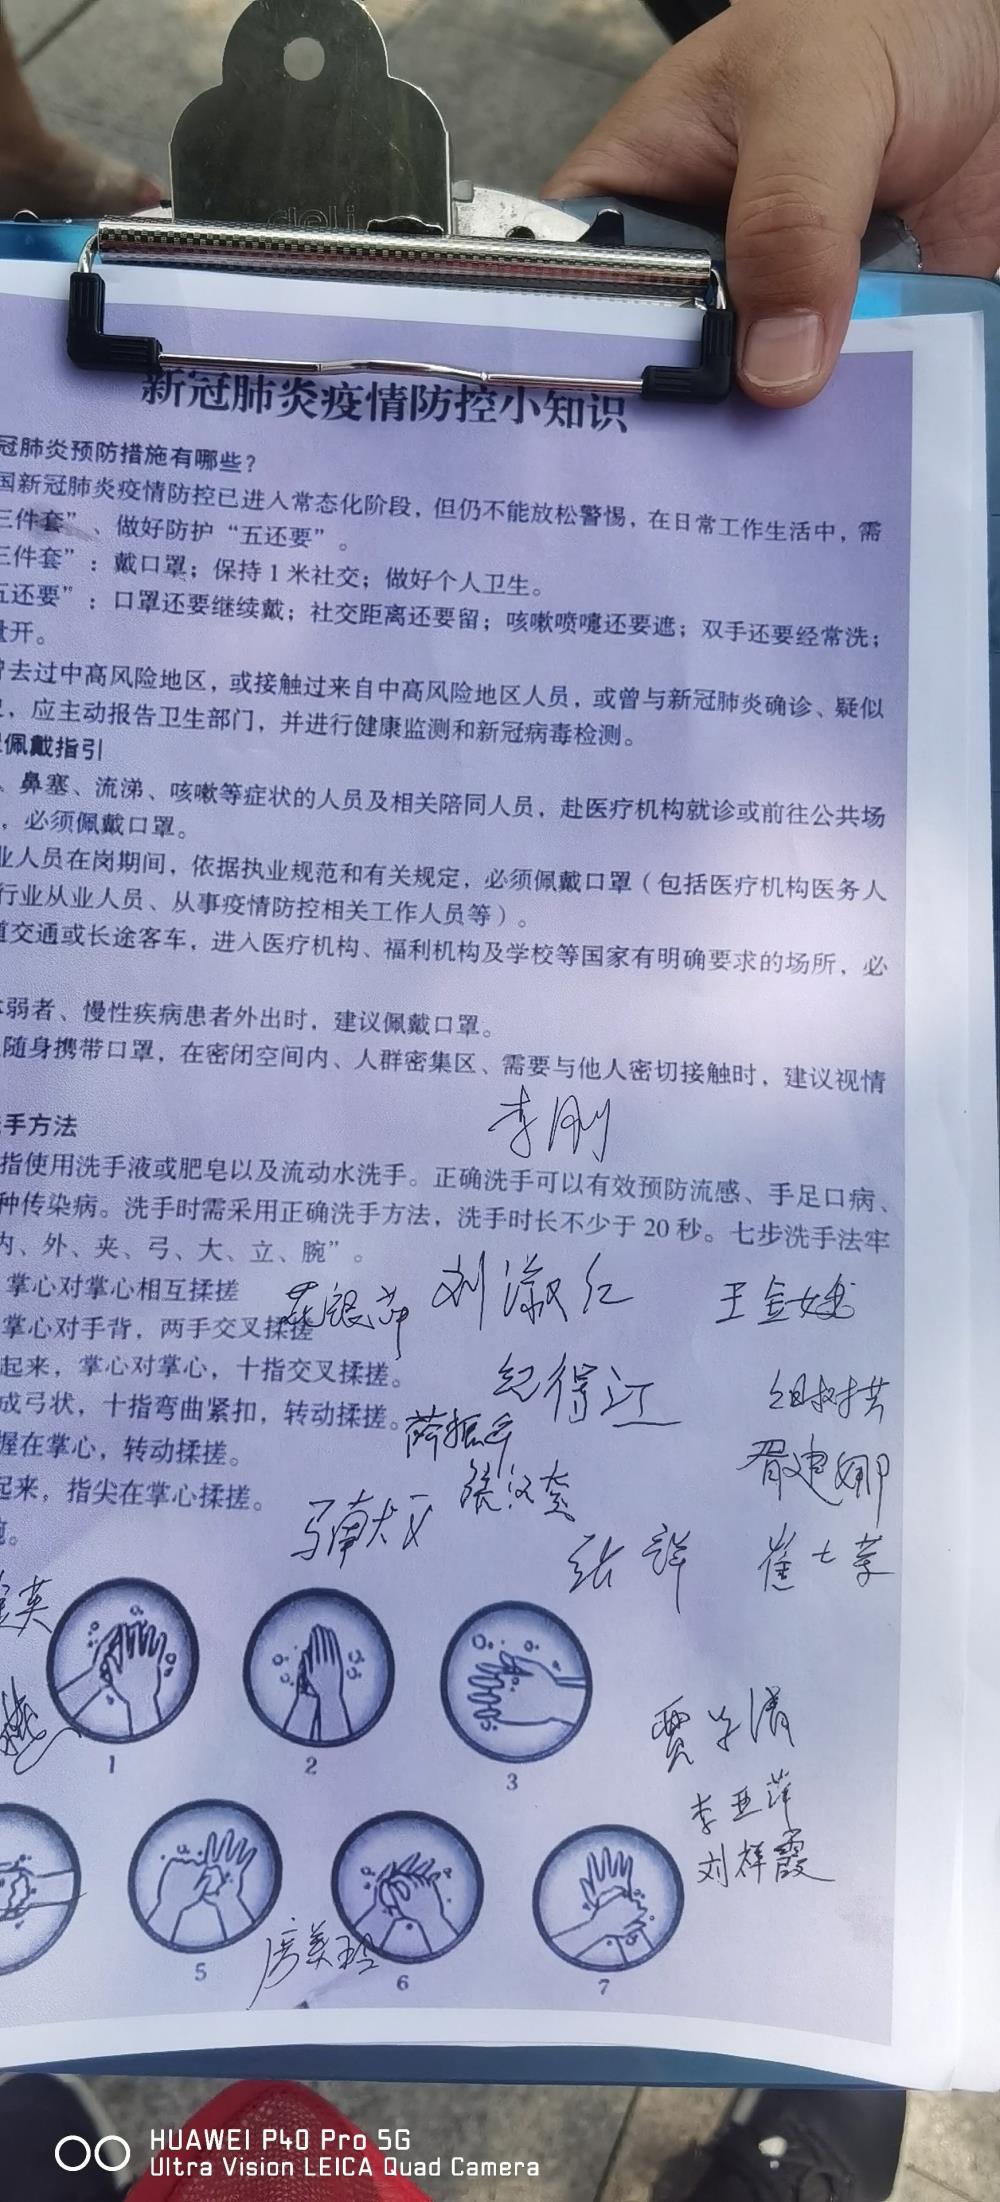 deli
新冠肺炎疫情防控小知识
冠肺炎预防措施有哪些？
国新冠肺炎疫情防控已进入常态化阶段，但仍不能放松警惕，在日常工作生活中，需
三件套”、做好防护“五还要”。
三件套”：戴口罩；保持1米社交；做好个人卫生。
五还要”：口罩还要继续戴；社交距离还要留；咳嗽喷嚏还要遮；双手还要经常洗；
开。
去过中高风险地区，或接触过来自中高风险地区人员，或曾与新冠肺炎确诊、疑似
，应主动报告卫生部门，并进行健康监测和新冠病毒检测。
佩戴指引
、鼻塞、流涕、咳嗽等症状的人员及相关陪同人员，赴医疗机构就诊或前往公共场
，必须佩戴口罩。
业人员在岗期间，依据执业规范和有关规定，必须佩戴口罩（包括医疗机构医务人
行业从业人员、从事疫情防控相关工作人员等）。
道交通或长途客车，进入医疗机构、福利机构及学校等国家有明确要求的场所，必
弱者、慢性疾病患者外出时，建议佩戴口罩。
随身携带口罩，在密闭空间内、人群密集区、需要与他人密切接触时，建议视情
李刚
手方法
指使用洗手液或肥皂以及流动水洗手。正确洗手可以有效预防流感、手足口病、
种传染病。洗手时需采用正确洗手方法，洗手时长不少于20秒。七步洗手法牢
内、外、夹、弓、大、立、腕”。
掌心对掌心相互揉搓
刘淑红
王金娥
掌心对手背，两手交叉揉搓
起来，掌心对掌心，十指交叉揉搓。
纪得江
成弓状，十指弯曲紧扣，转动揉搓。
握在掌心，转动揉搓。
胥建娜
起来，指尖在掌心揉搓。
张祥
英
1
2
3
李亚萍
刘祥霞
房美玲
5
6
7
HUAWEI P40 Pro 5G
Ultra Vision LEICA Quad Camera